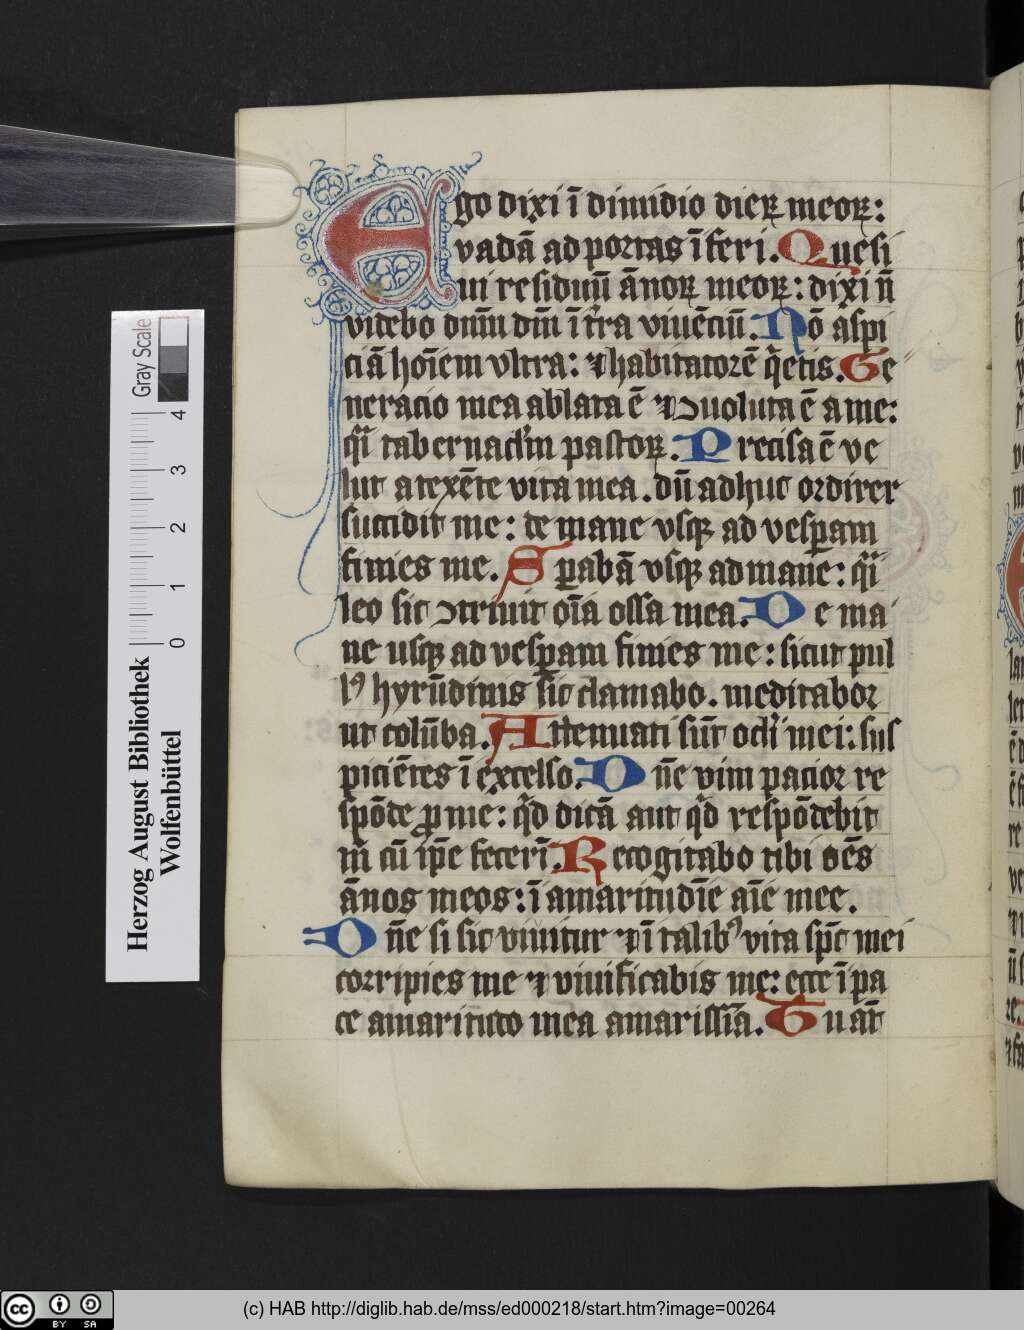 Ego dixi ī dimidio dieꝝ meoꝝ:
vadā ad portas īferi. Quesi
ui residuū ānoꝝ meoꝝ: dixi n̄
videbo dn̄m dm̄ ī tr̄ra viuēciū. Nō aspi
ciā hoīem vltra: ⁊ habitatorē q̄etis. Ge
neracio mea ablata ē ⁊ ꝯuoluta ē a me:
qͣi tabernacl̄m pastoꝝ. Precisa ē ve
lut a texēte vita mea. dū adhuc ordirer
succidit me: de mane vsqꝫ ad vesꝑam
finies me. Sꝑabā vsqꝫ ad mane: qͣi
leo sic ꝯtriuit oīa ossa mea. De ma
ne usqꝫ ad vesꝑam finies me: sicut pul
lꝰ hyrūdinis sic clamabo. meditabor
ut colūba. Attenuati sūt ocl̄i mei: sus
piciētes ī excelso. Dn̄e vim pacior re
spōde ꝓ me: qͥd dicā aut qͥd respōdebit
m̄ cū ip̄e fecerī. Recogitabo tibi oēs
ānos meos: ī amaritudīe aīe mee.
Dn̄e si sic viuitur ⁊ ī talibꝰ vita sp̄c mei
corripies me ⁊ viuificabis me: ecce ī pa
ce amaritudo mea amarissīa. Tu aūt
Gray Scale
0 1 2 3 4
Herzog August Bibliothek
Wolfenbüttel
cc BY SA
(c) HAB http://diglib.hab.de/mss/ed000218/start.htm?image=00264